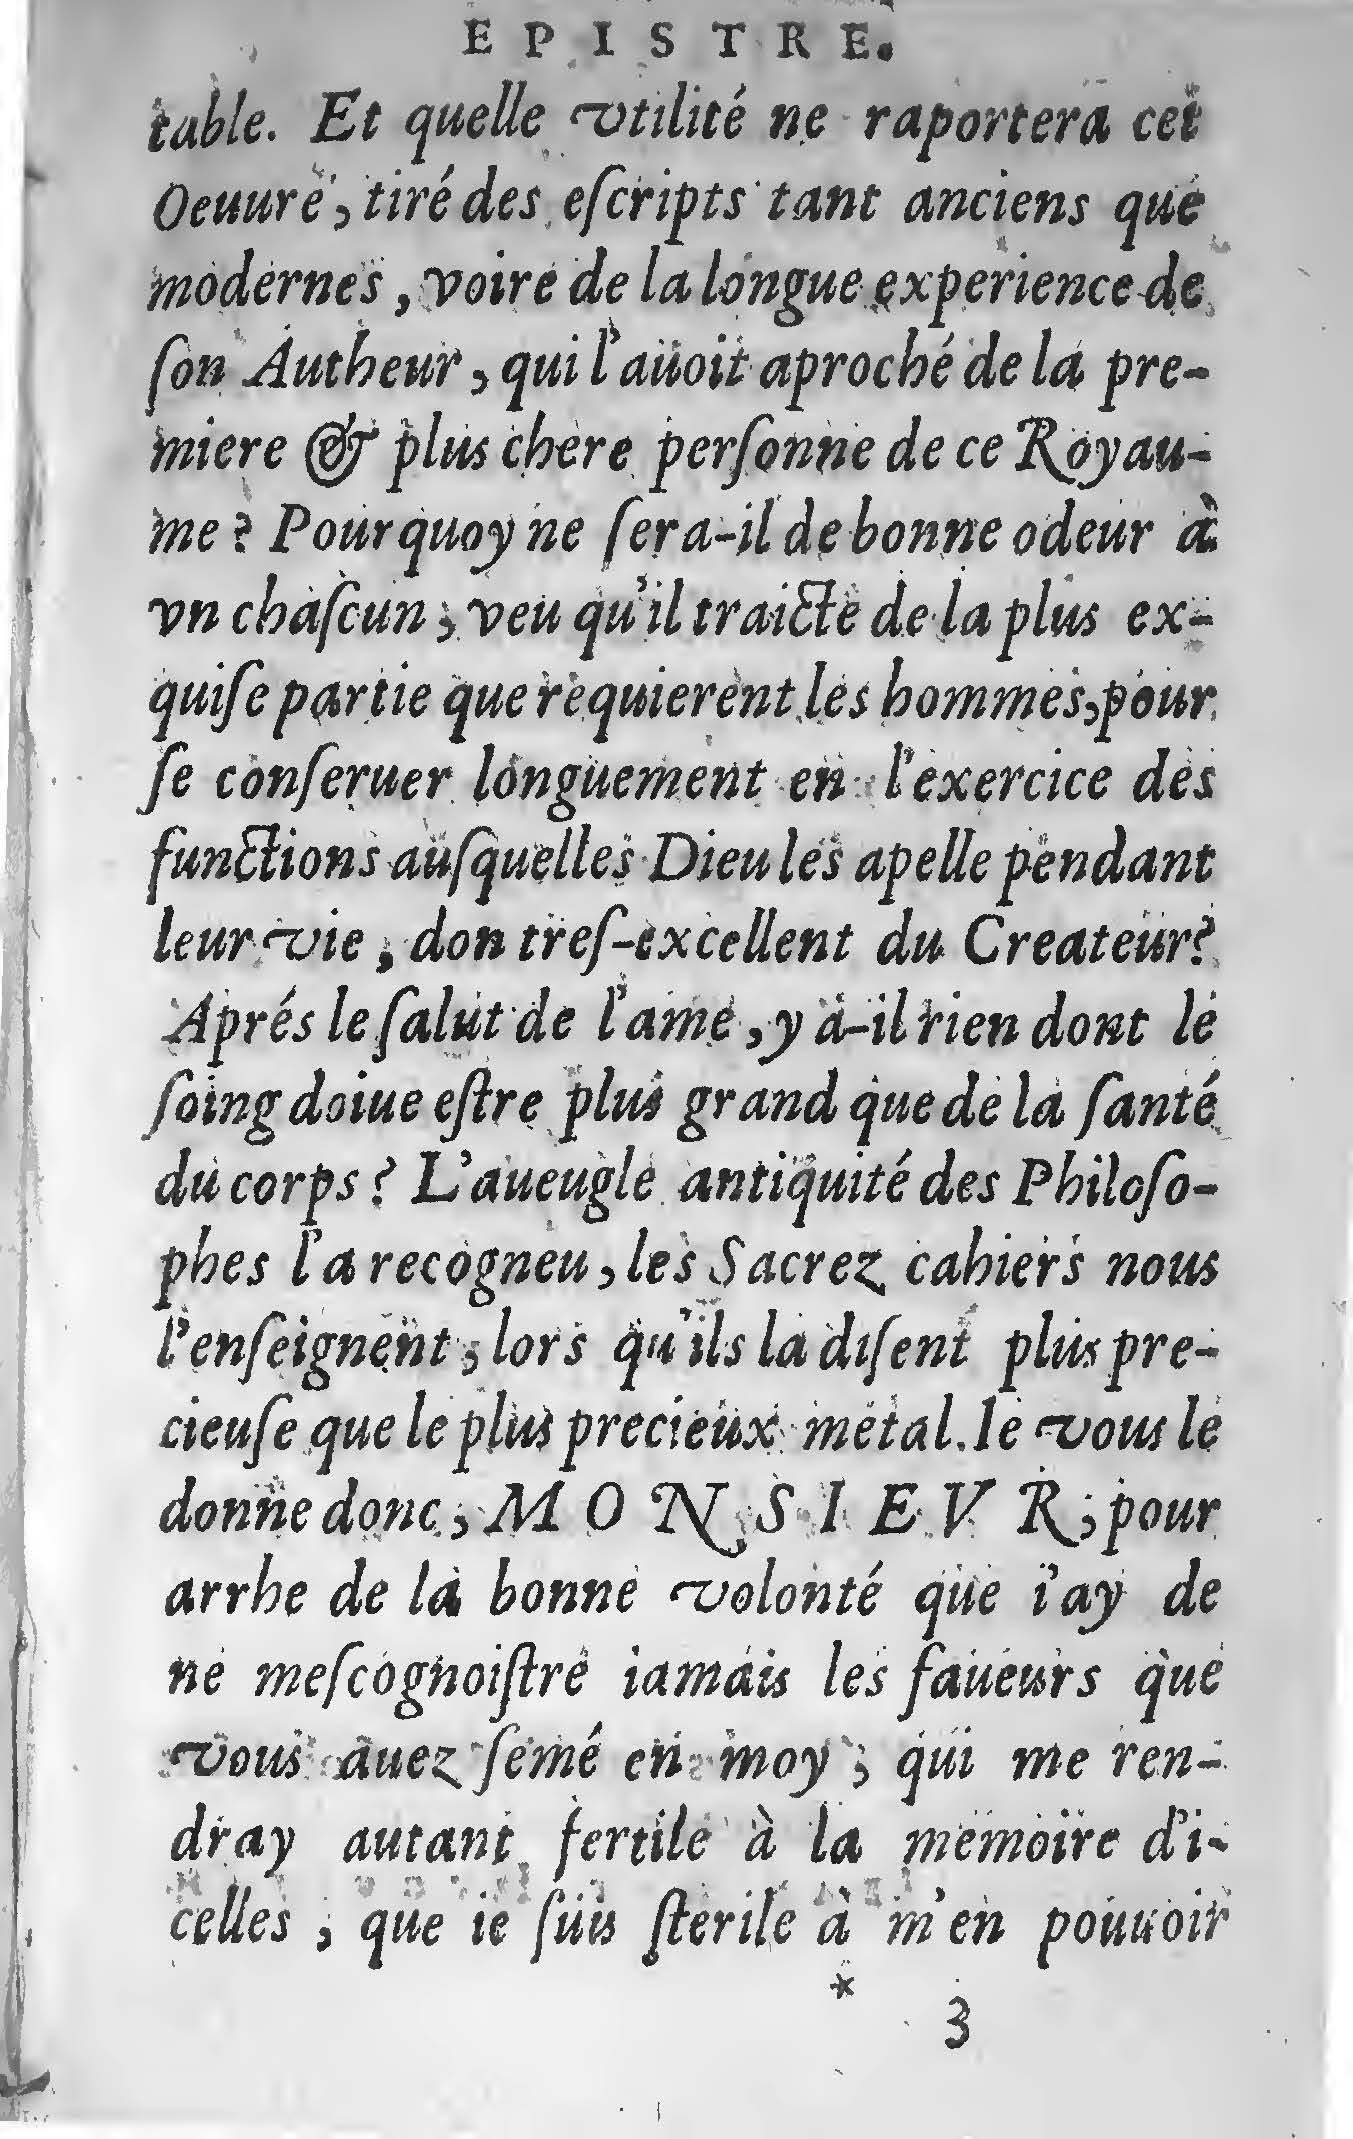 EPISTRE.
table. Et quelle vtilité ne raportera cet
Oeuure, tiré des eſcripts tant anciens que
modernes, voire de la longue experience de
ſon Autheur, qui l'auoit aproché de la pre-
miere & plus chere perſonne de ce Royau-
me? Pourquoy ne ſera-il de bonne odeur à
vn chaſcun, veu qu'il traicte de la plus ex-
quiſe partie que requierent les hommes, pour
ſe conſeruer longuement en l'exercice des
functions auſquelles Dieu les apelle pendant
leur vie, don treſ-excellent du Createur?
Aprés le ſalut de l'ame, y à-il rien dont le
ſoing doiue eſtre plus grand que de la ſanté
du corps? L'aueugle antiquité des Philoſo-
phes l'a recogneu, les Sacrez cahiers nous
l'enſeignent, lors qu'ils la diſent plus pre-
cieuſe que le plus precieux metal. Ie vous le
donne donc, MONSIEVR, pour
arrhe de la bonne volonté que i'ay de
ne meſcognoiſtre iamais les faueurs que
vous auez ſemé en moy, qui me ren-
dray autant fertile à la memoire d'i-
celles, que ie ſuis ſterile à m'en pouuoir
* 3